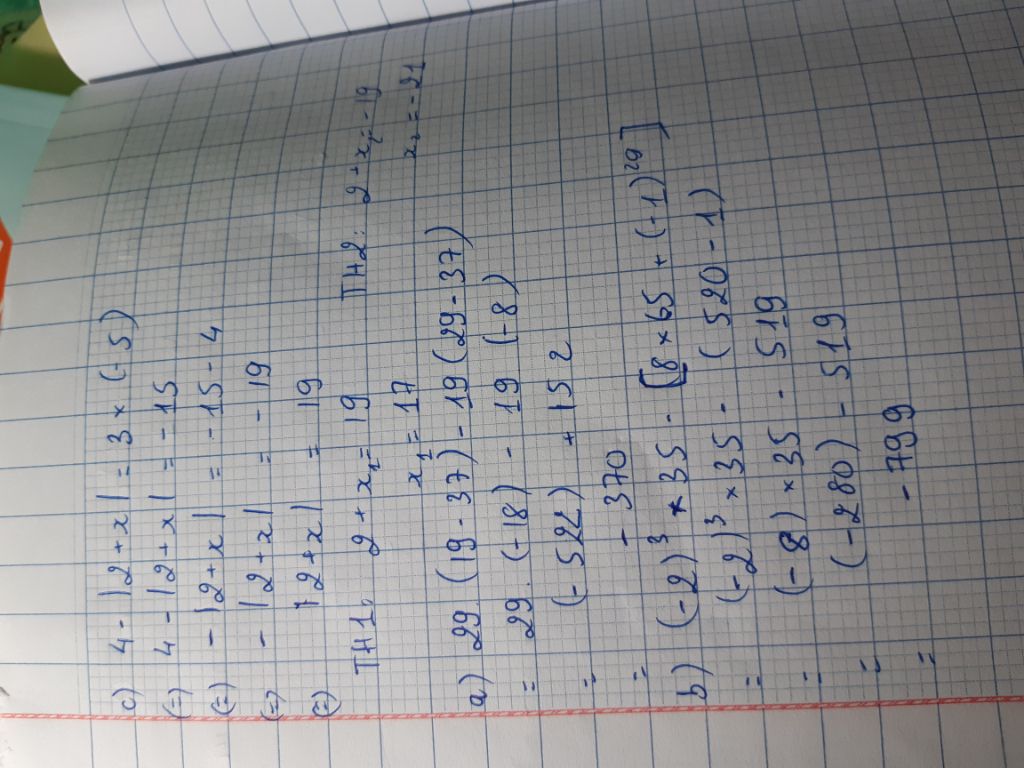 c) 4 - |2 + x| = 3 × (-5)
(=) 4 - |2 + x| = -15
(=) - |2 + x| = -15 - 4
(=) - |2 + x| = -19
(=) |2 + x| = 19
TH1: 2 + x₁ = 19 TH2: 2 + x₂ = -19
x₁ = 17 x₂ = -21
a) 29 (19 - 37) - 19 (29 - 37)
= 29 . (-18) - 19 (-8)
= (-522) + 152
= -370
b) (-2)³ × 35 - [8 × 65 + (-1)²⁹]
= (-2)³ × 35 - (520 - 1)
= (-8) × 35 - 519
= (-280) - 519
= -799